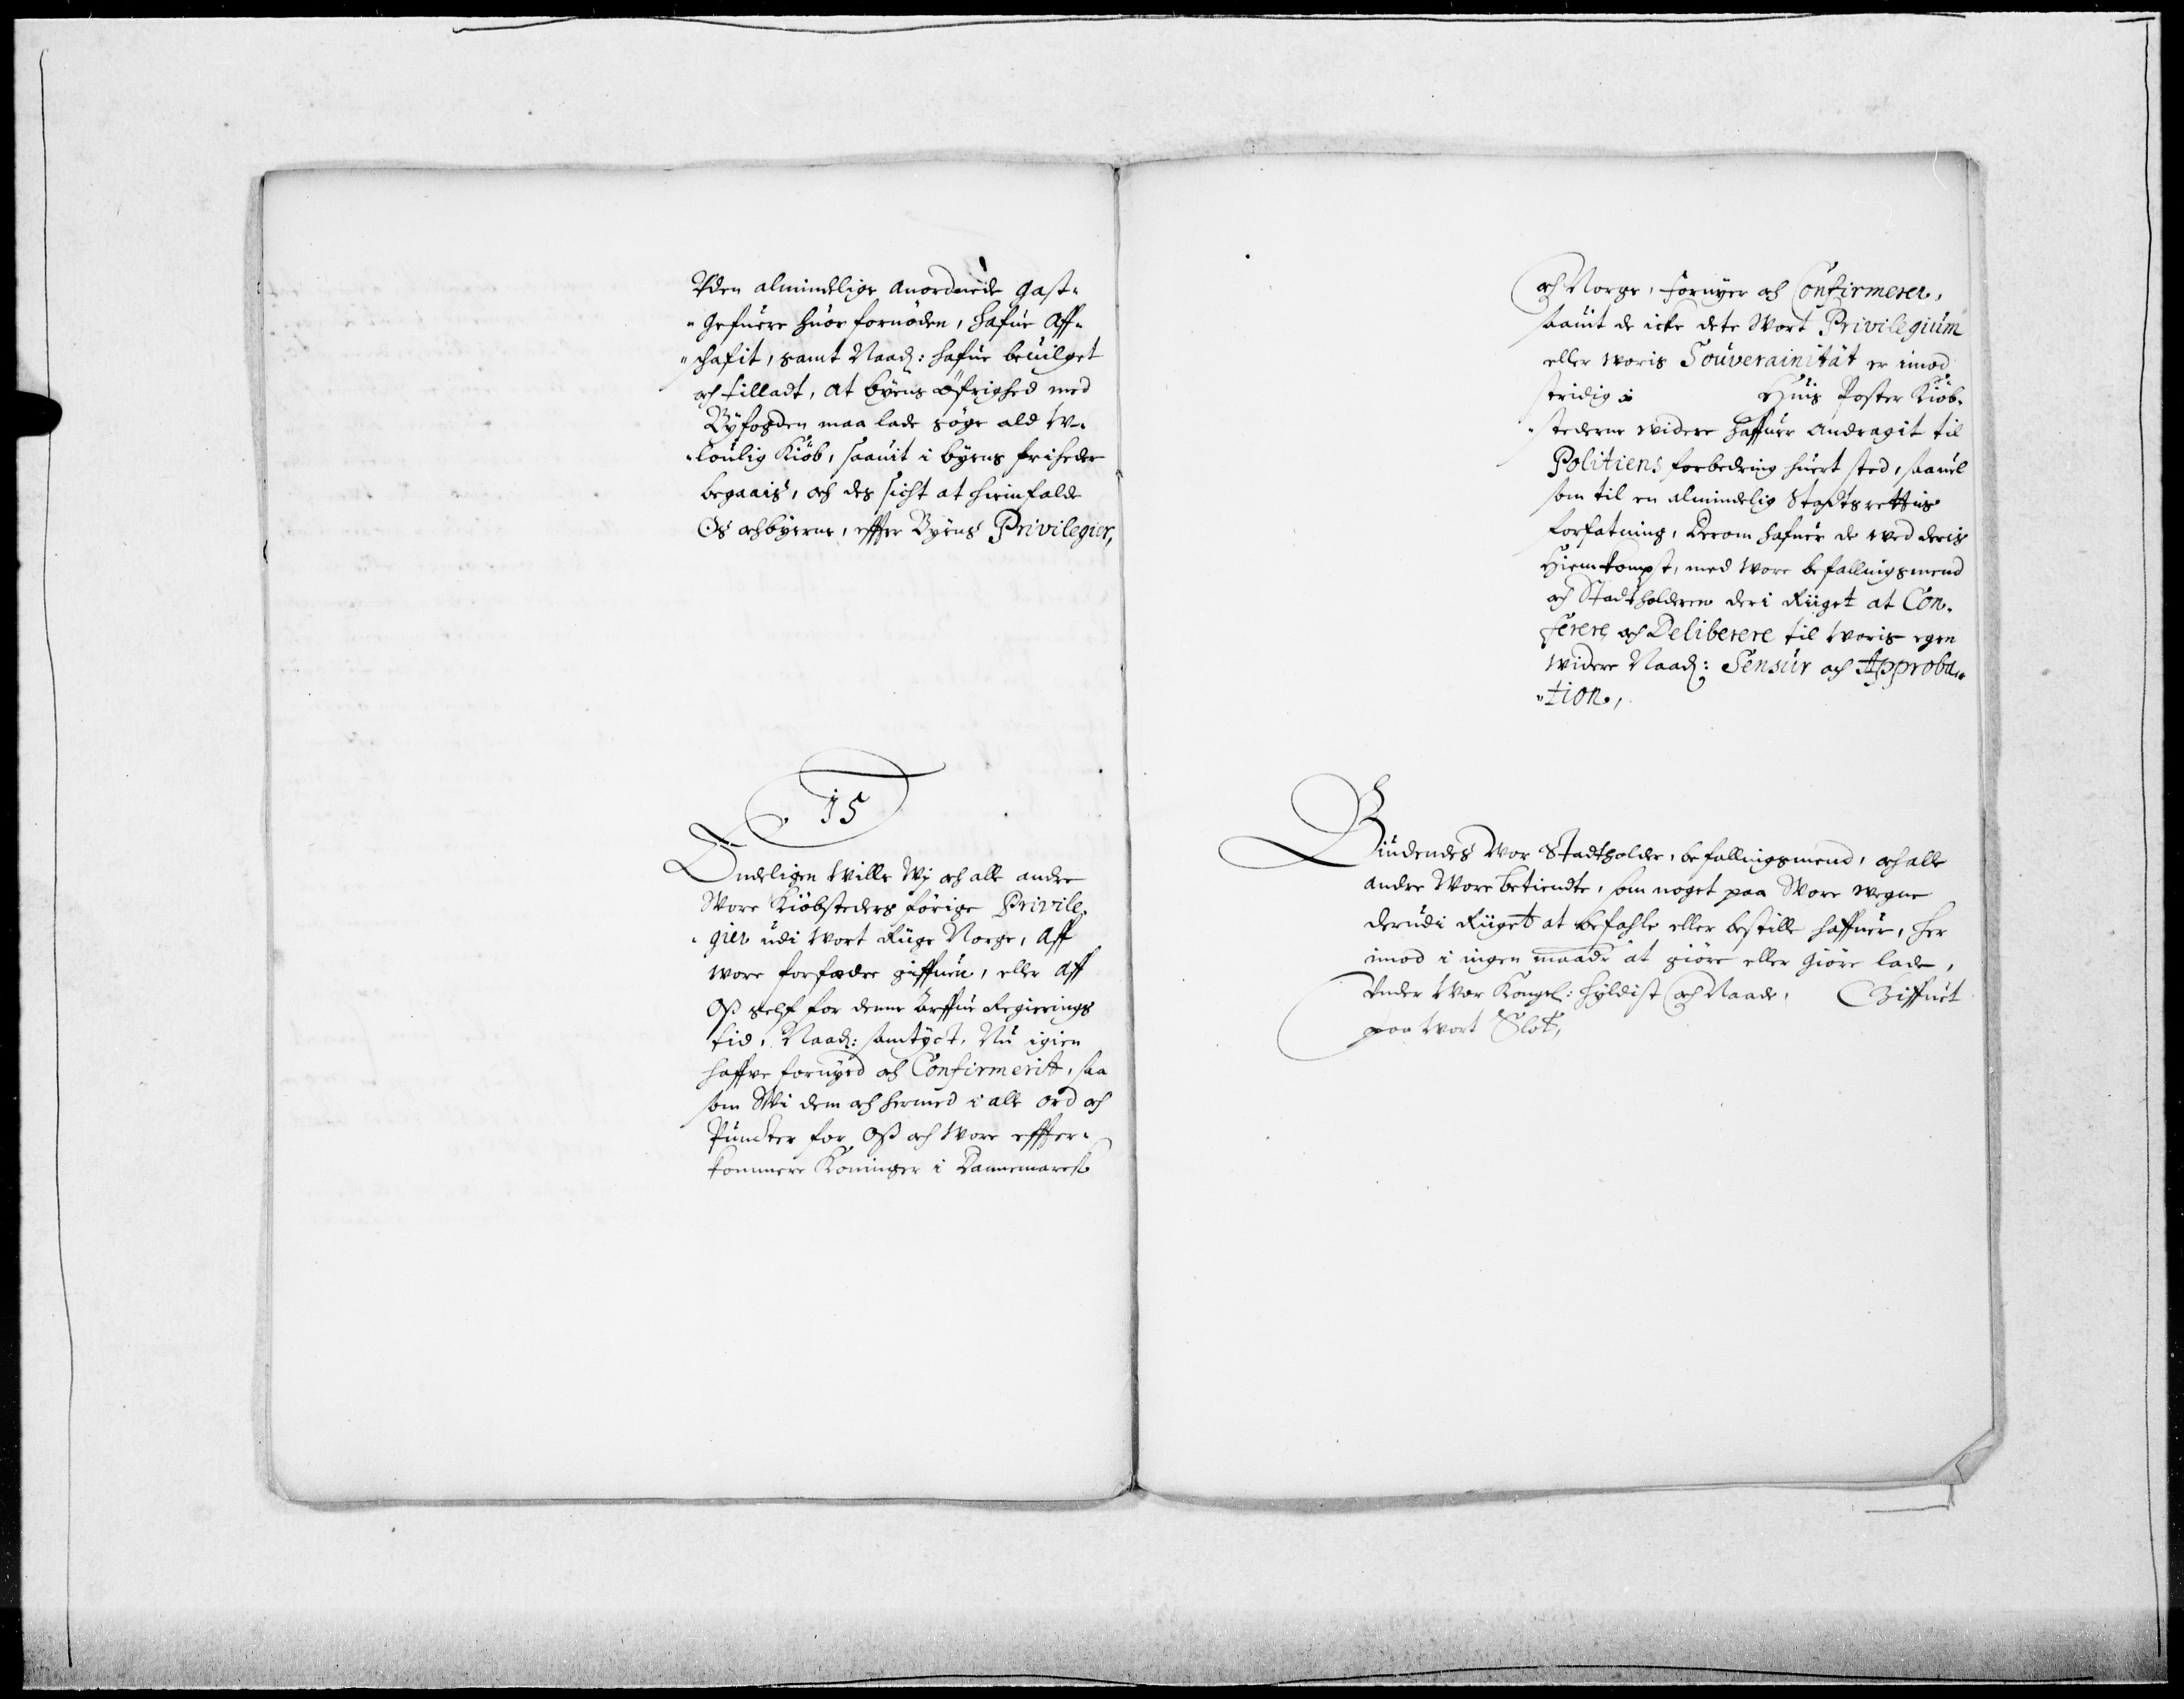 Vden almindelige anordnede gast-
"gefuere huor fornøden, hafue Aff-
"schafit, samt Naadl: hafue beuilget
och tilladt, at byens øfrighed med
Byfogden maa lade søge ald W-
"loulig Kiøb, saauit i byens friheder
begaais, och des sicht at hiemfalde
Os och byerne, effter Byens Privilegier,
15
Endeligen Wille Wj och alle andre
Wore Kiøbsteders forige Privile-
"gier udi Wort Riige Norge, Aff
Wore forfædre giffuen, eller Aff
Oß self for denne Arffue Regierings
tid, Naadl: samtyct, Nu igien
haffve fornyed och Confirmerit, saa
som Wi dem och hermed i alle ord och
Puncter for Oß och Wore effter-
kommere Koninger i Dannemarck
och Norge, fornyer och Confirmerer,
saauit de icke dete Wort Privilegium
eller Woris Souverainität er imod
stridig Huis Poster Kiøb-
"stederne widere haffuer andragit til
Politiens forbedring huert sted, saauel
som til en almindelig Stadtsrettis
forfatning, Derom hafuer de wed deris
Hiemkompst, med Wore befallingsmend
och Stadtholderen der i Riiget at Con-
ferere och Deliberere til Woris egen
widere Naadl: Sensur och Approba-
"tion,
Biudendes Wor Stadtholder, befallingsmend, och alle
andre Wore betiendte, som noget paa Wore wegne
derudi Riiget at befahle eller bestille haffuer, her
imod i ingen maade at giøre eller giøre lade,
Vnder Wor Kongel: hyldist och Naade, Giffuet
paa Wort Slot,